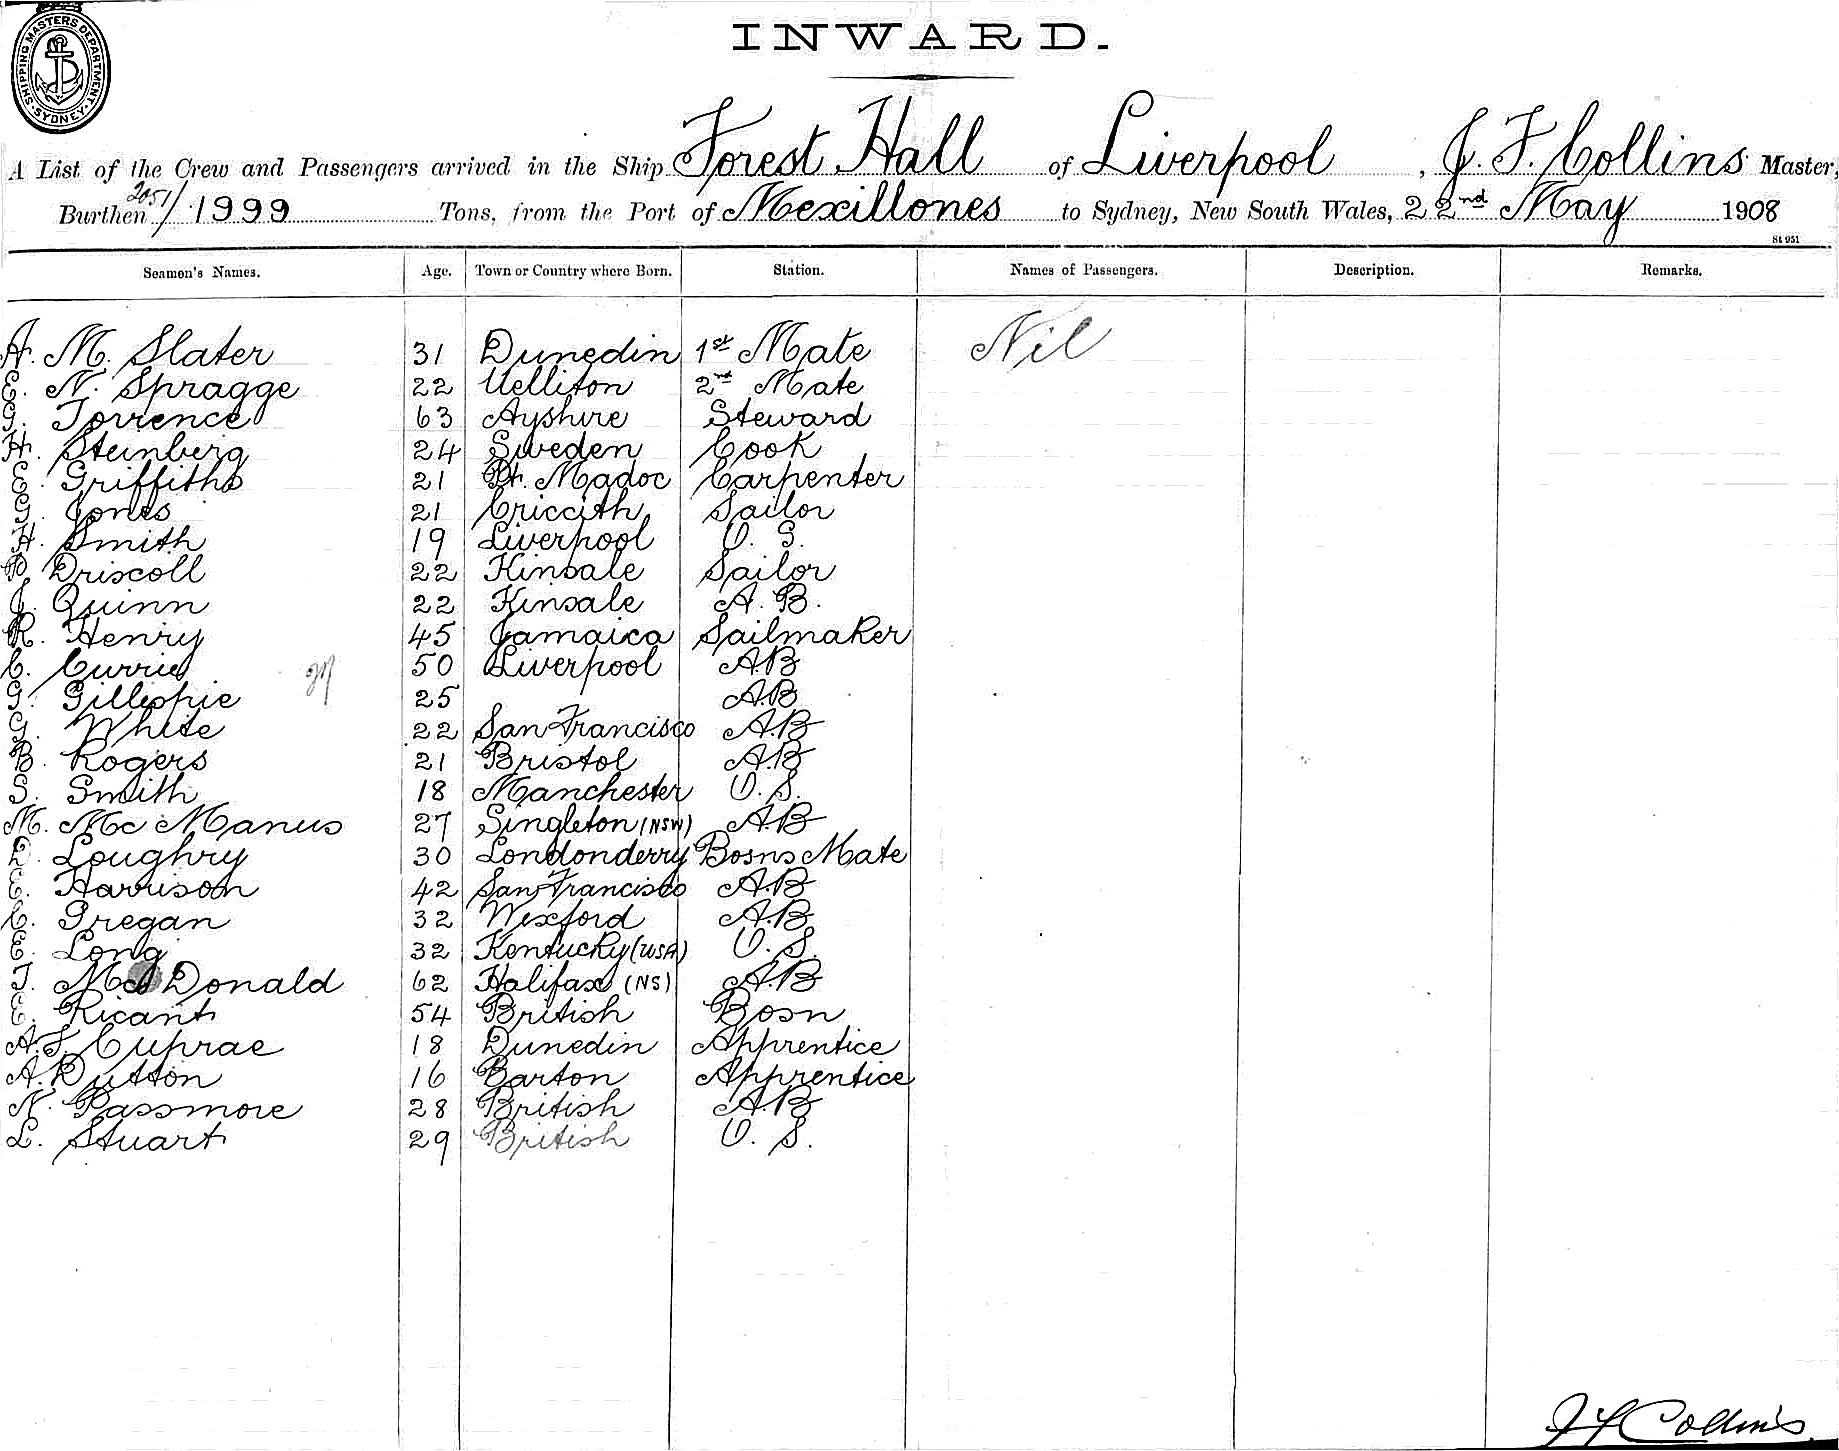 SHIPPING MASTERS DEPARTMENT
SYDNEY
INWARD.
A List of the Crew and Passengers arrived in the Ship Forest Hall of Liverpool, J. F. Collins Master,
Burthen 2051/1999 Tons, from the Port of Mexillones to Sydney, New South Wales, 22nd May 1908
St 951
Seamen's Names. Age. Town or Country where Born. Station. Names of Passengers. Description. Remarks.
A. M. Slater 31 Dunedin 1st Mate Nil
E. N. Spragge 22 Uelliton 2nd Mate
G. Torrence 63 Ayshire Steward
H. Steinberg 24 Sweden Cook
E. Griffiths 21 Pt. Madoc Carpenter
G. Jones 21 Criccith Sailor
H. Smith 19 Liverpool O. S.
D. Driscoll 22 Kinsale Sailor
J. Quinn 22 Kinsale A. B.
R. Henry 45 Jamaica Sailmaker
C. Currie 50 Liverpool A.B
G. Gillespie 25 A.B
G. White 22 San Francisco A.B
B. Rogers 21 Bristol A.B
S. Smith 18 Manchester O. S.
M. Mc Manus 27 Singleton (NSW) A.B
D. Loughry 30 Londonderry Bosns Mate
E. Harrison 42 San Francisco A.B
C. Gregan 32 Wexford A.B
E. Long 32 Kentucky (USA) O. S.
T. Mc Donald 62 Halifax (NS) A.B
E. Ricant 54 British Bosn
A. F. Cuprae 18 Dunedin Apprentice
A. Dutton 16 Barton Apprentice
N. Passmore 28 British A.B
L. Stuart 29 British O. S.
J F Collins